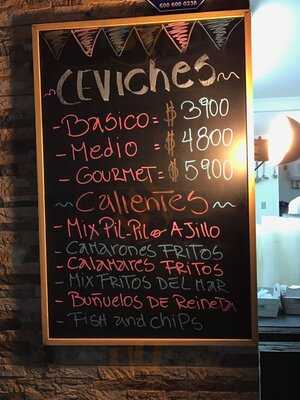 600 600 0236
CEVICHES
- BASICO = $ 3900
- MEDIO = $ 4800
- GOURMET = $ 5900
CALIENTES
- MIX PIL-PIL O AJILLO
- CAMARONES FRITOS
- CALAMARES FRITOS
- MIX FRITOS DEL MAR
- BUÑUELOS DE REINETA
- FISH and CHIPS